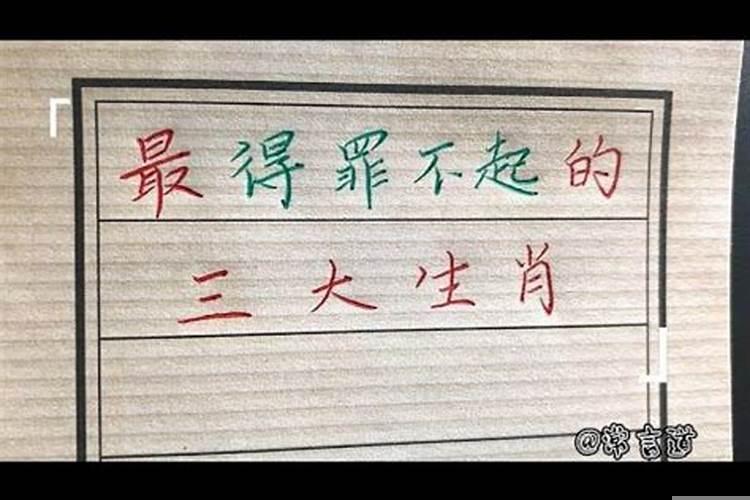 最得罪不起的
三大生肖
@常言道